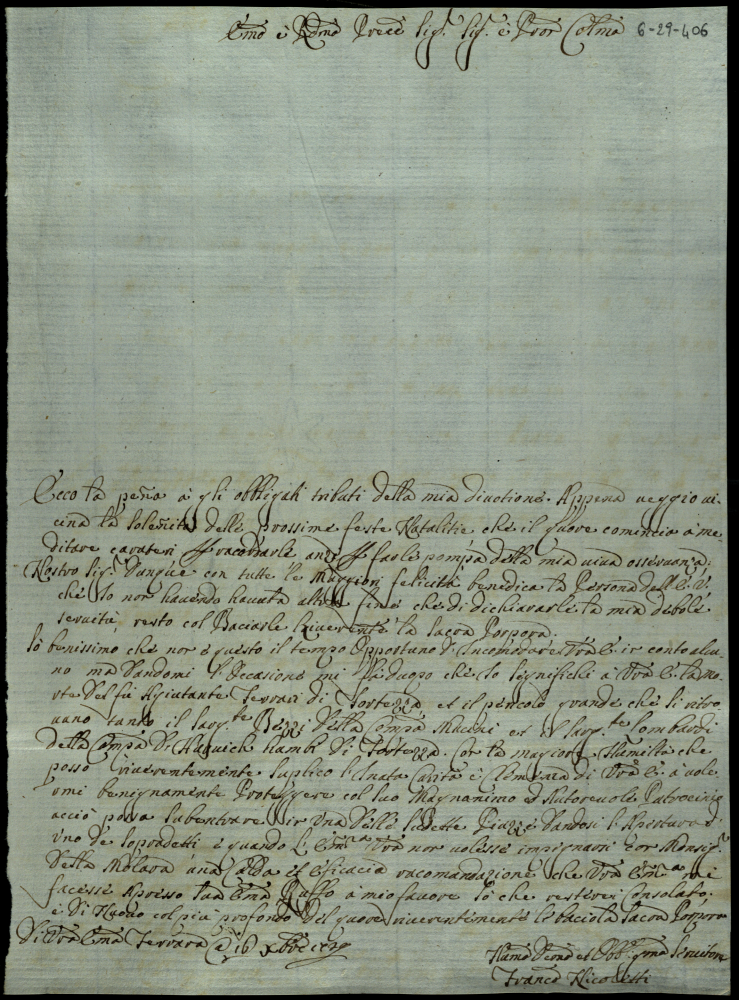 Emo e Rdmo Prece Sigr. Sigr. e Pron Colmo 6-29-406
Ecco la pena a gli obbligati tributi della mia divotione. Appena veggio vi-
cina la solenità delle prossime feste Natalitie che il quore comincia a me-
ditare carateri racordarle anzi farle pompa della mia viva osservanza;
Nostro Sigr. dunque con tutte le Maggiori felicità benedica la Persona dell E. V.
che Io non havendo havuta altro fine che di dichiararle la mia debole
servitù, resto col Baciarle la Sacra Porpora.
Io benissimo che non è questo il tempo Opportuno d'Incomodare Vra E. in conto alcu-
no ma dandomi l'Occasione mi fà duopo che Io Significhi a Vra E. la mo-
rte del fù Agiutante Ferrari di Fortezza et il pericolo grande che si ritro-
vano tanto il Sargte. Bezzi della Compa Mucini et il Sargte. Lombardi
della Compa di ambi di Fortezza. Con la magiore Humiltà che
posso riverentemente suplico l'Inata Carità e Clemenza di Vra E. a vole-
rmi benignamente Proteggere col suo Magnanimo et Autorevole Patrocinio
acciò possa subentrare in Una delle sudette Piazze dandosi l'Apertura d'
uno de sopradetti e quando l' Emza Vra non volesse impegnarsi con Monsigr.
della Molara una Calda et eficacia racomandazione che Vra Emza mi
facesse Apresso Sua Emza Ruffo a mio favore Io che resterei Consolato;
e di Nuovo col più profondo del quore riverentemente le bacio la Sacra Porpora
Di Vra Emza Ferrara 16 Xbre
Humo Devmo et Obbmo Servitore
Franco Nicoletti